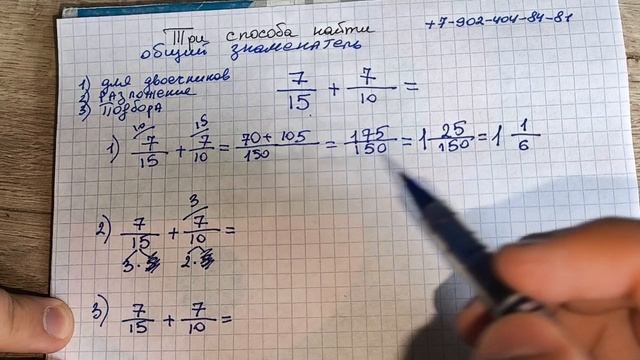 Три способа найти +7-902-404-84-81
общий знаменатель
1) для двоечников
2) Разложение
3) Подбора
7/15 + 7/10 =
1) 10 7/15 + 15 7/10 = 70+105/150 = 175/150 = 1 25/150 = 1 1/6
2) 7/15 + 3 7/10 =
3·5 2·5
3) 7/15 + 7/10 =